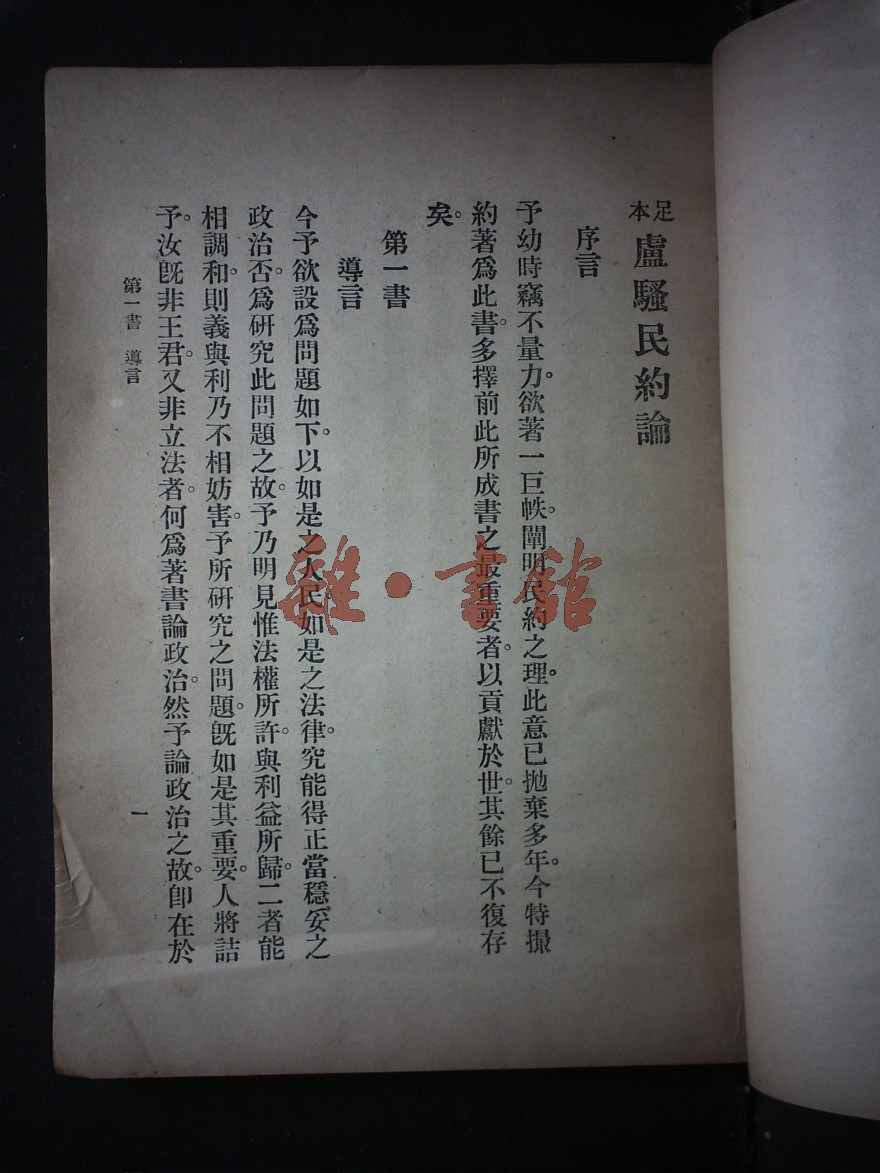 足本 盧騷民約論
序言
予幼時竊不量力。欲著一巨帙。闡明民約之理。此意已拋棄多年。今特撮
約著爲此書。多擇前此所成書之最重要者。以貢獻於世。其餘已不復存
矣。
第一書
導言
今予欲設爲問題如下。以如是之人民。如是之法律。究能得正當穩妥之
政治否。爲研究此問題之故。予乃明見惟法權所許。與利益所歸。二者能
相調和。則義與利乃不相妨害。予所研究之問題。旣如是其重要。人將詰
予。汝旣非王君。又非立法者。何爲著書論政治。然予論政治之故。卽在於
第一書 導言
一
雜·書館